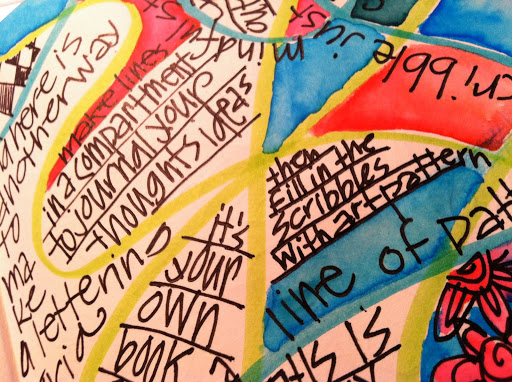 there is
another way
to
ma
ke
a lettering
grid
make lines
in a compartment
to journal your
thoughts ideas
mindful
just
scribble
then
fill in the
scribbles
with art pattern
line of pat
it's
your
own
book